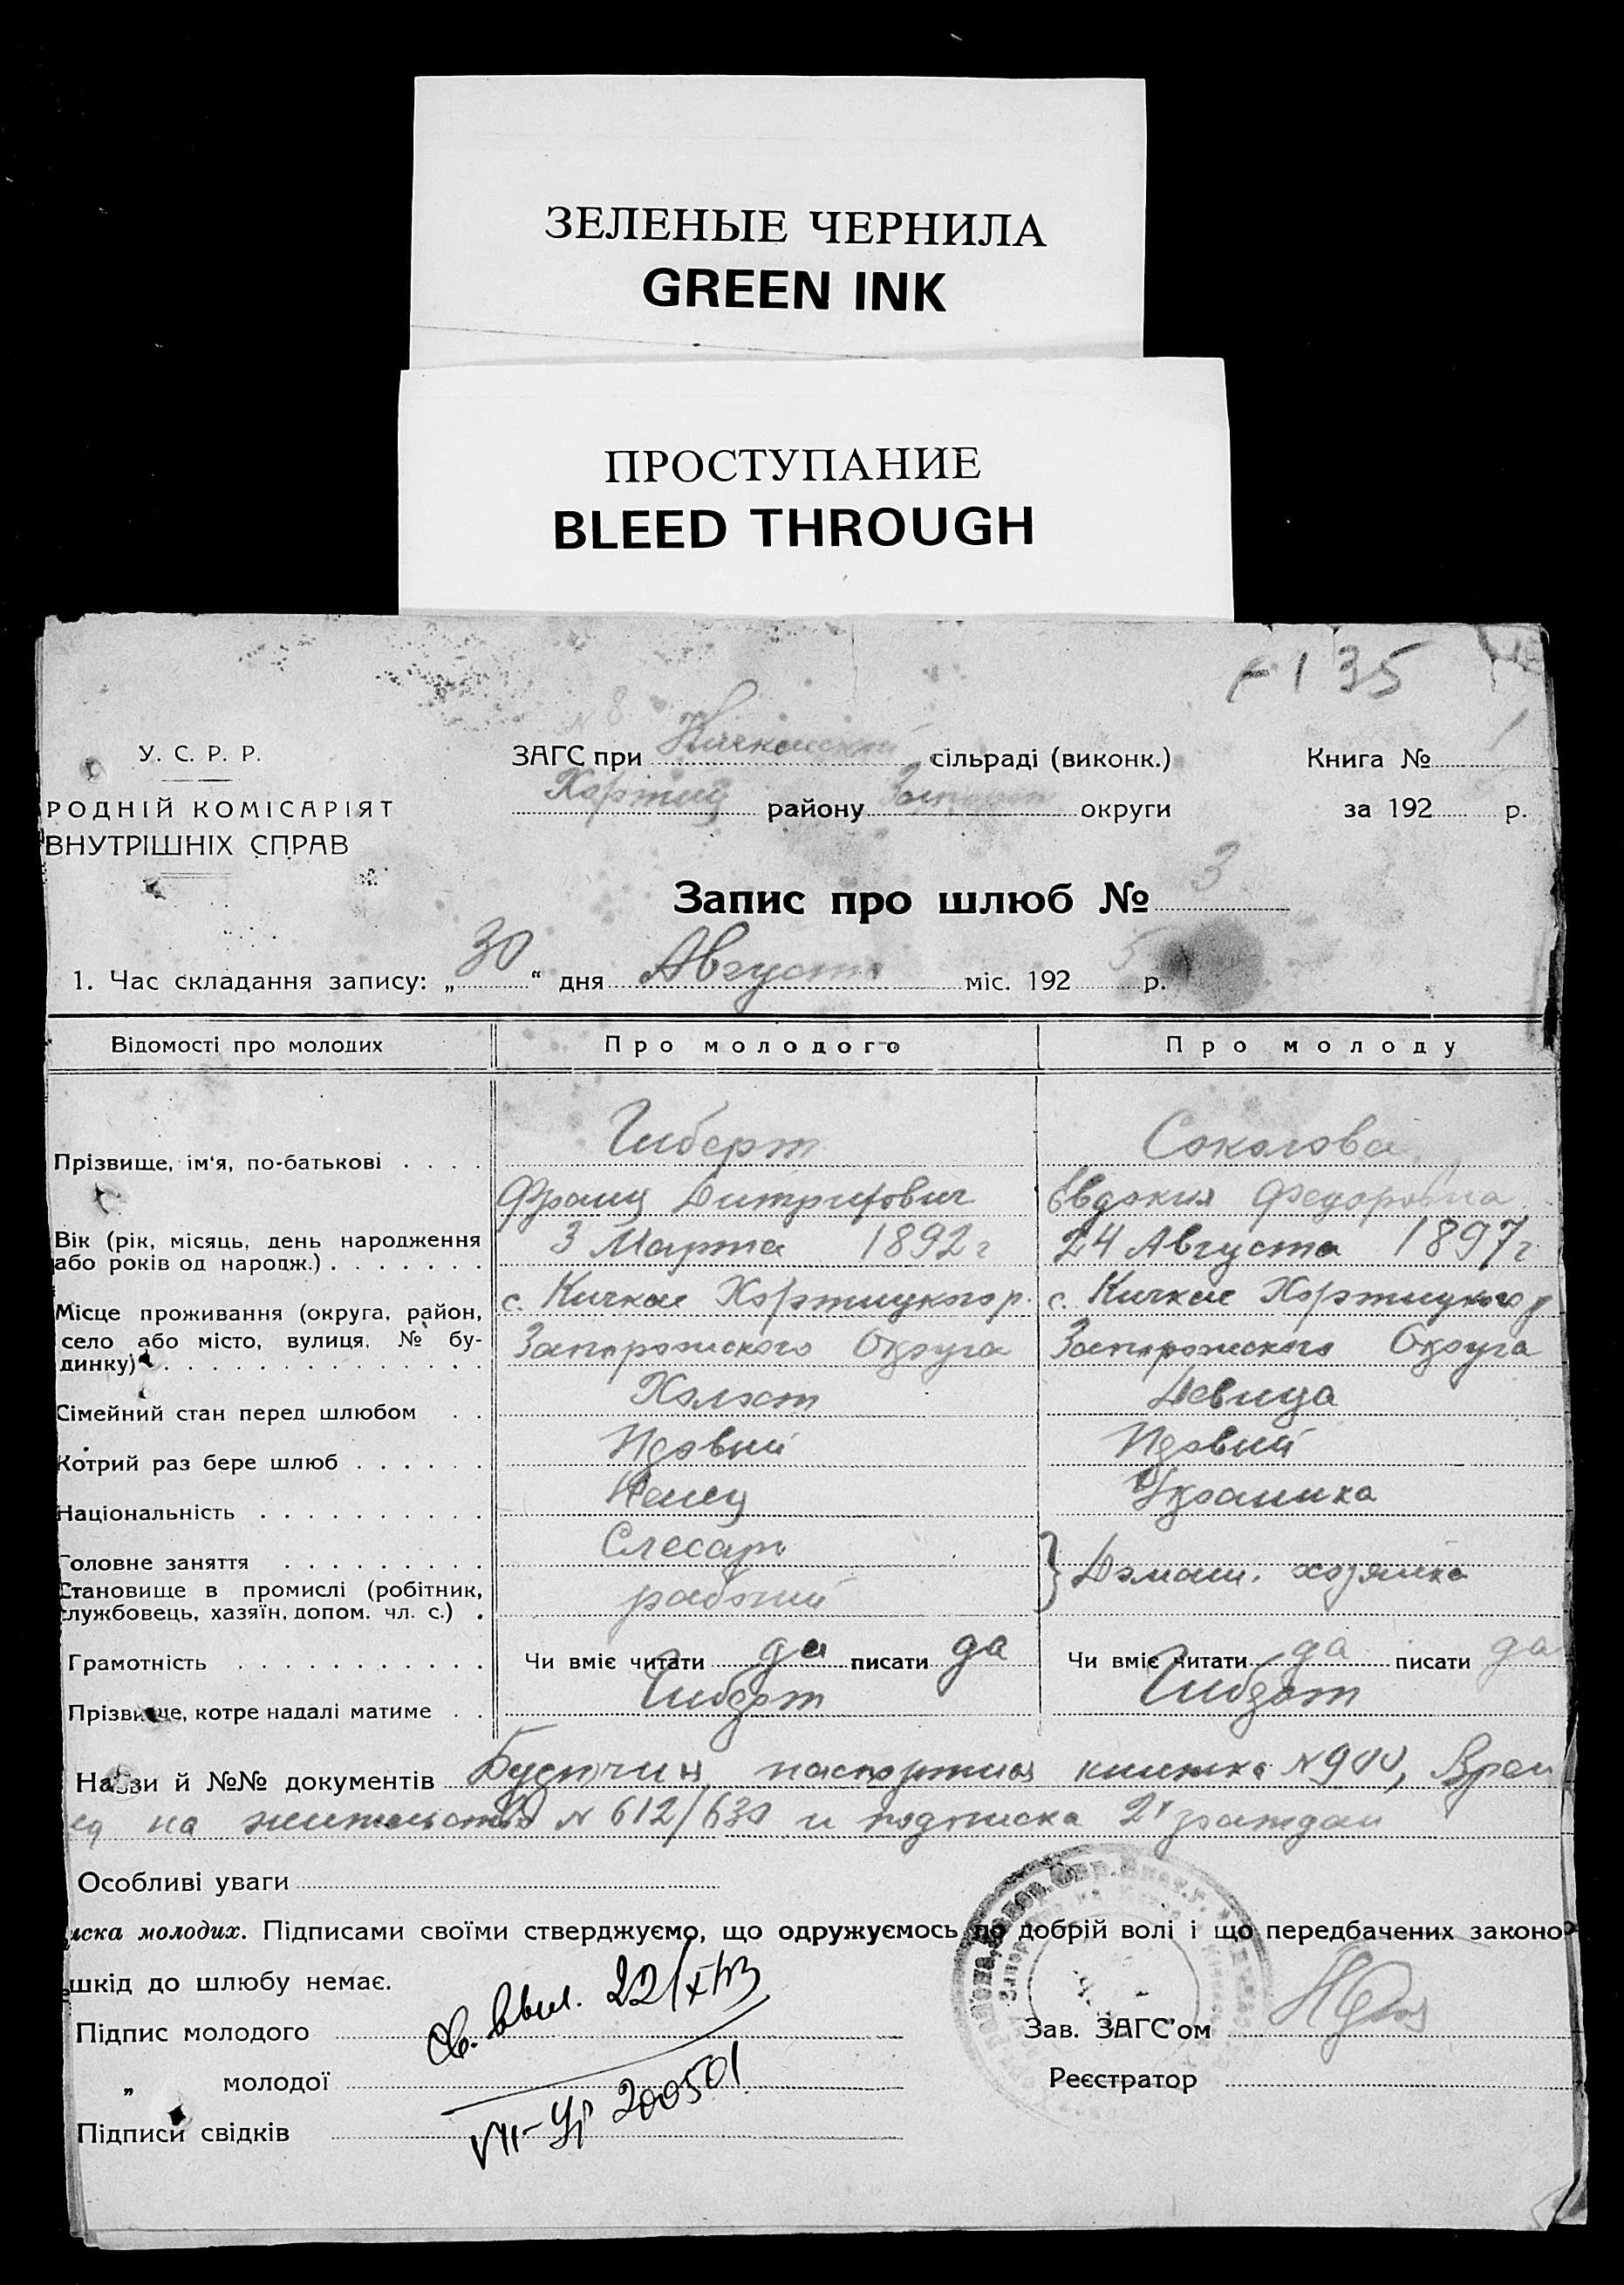 ЗЕЛЕНЫЕ ЧЕРНИЛА
GREEN INK
ПРОСТУПАНИЕ
BLEED THROUGH
135
N 8
У. С. Р. Р.
ЗАГС при Кичкасской сільраді (виконк.) Книга № 1
РОДНІЙ КОМІСАРІЯТ
Хортиц району Запорож округи за 192 р.
ВНУТРІШНІХ СПРАВ
Запис про шлюб № 3
1. Час складання запису: „30“ дня Августа міс. 1925 р.
Відомості про молодих Про молодого Про молоду
Прізвище, ім'я, по-батькові . . . . Гиберт Соколова
Франц Дитрихович Евдокия Федоровна
Вік (рік, місяць, день народження
або років од народж.) . . . . . . . 3 Марта 1892 г 24 Августа 1897 г
Місце проживання (округа, район, с. Кичкас Хортицкого р. с. Кичкас Хортицкого р
село або місто, вулиця, № бу-
динку) . . . . . . . . . . . . . . Запорожского Округа Запорожского Округа
Сімейний стан перед шлюбом . . Холост Девица
Котрий раз бере шлюб . . . . . . Первый Первый
Національність . . . . . . . . . . Немец Украинка
Головне заняття . . . . . . . . . Слесарь } Домаш. хозяйка
Становище в промислі (робітник,
службовець, хазяїн, допом. чл. с.) . рабочий
Грамотність . . . . . . . . . . . Чи вміє читати да писати да Чи вміє читати да писати да
Прізвище, котре надалі матиме . . Гиберт Гиберт
Назви й №№ документів паспортная книжка N 900,
на жительство N 612/630 и подписка 2х граждан
Особливі уваги
иска молодих. Підписами своїми стверджуємо, що одружуємось по добрій волі і що передбачених законо
шкід до шлюбу немає.
Підпис молодого Св. выд. 22/X Зав. ЗАГС'ом
„ молодої Реєстратор
VII-УР 200501
Підписи свідків